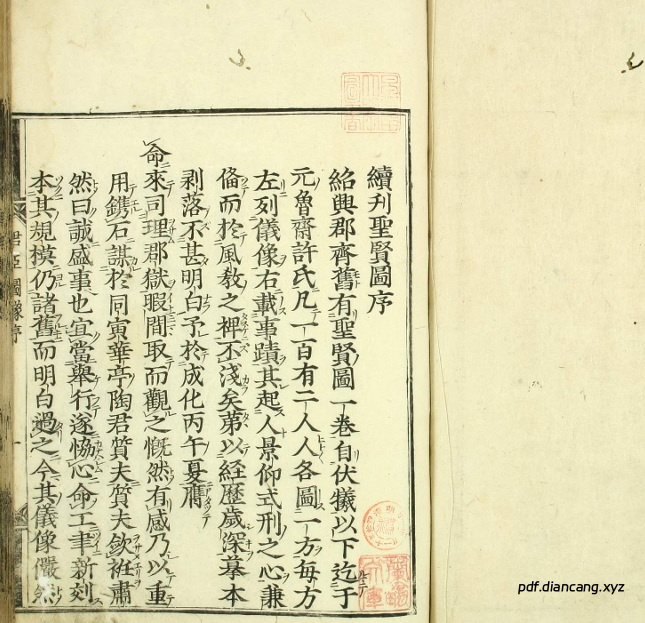 續刋聖賢圖序
紹興郡齊舊有聖賢圖一卷自伏犧以下迄于
元魯齋許氏凡一百有二人人各圖一方每方
左列儀像右載事蹟其起人景仰式刑之心兼
俻而於風敎之裨不淺矣第以経歷歲深摹本
剥落不甚明白予於成化丙午夏膺
命來司理郡獄暇間取而觀之慨然有感乃以重
用鐫石謀於同寅華亭陶君質夫質夫欽袵肅
然曰誠盛事也宜當舉行遂恊心命工聿新刻
本其規模仍諸舊而明白過之今其儀像儼然
君臣圖像序
pdf.diancang.xyz